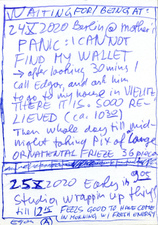 WAITING FOR/BEING AT:
24 X 2020 Berlin @ mother's
PANIC: I CAN NOT
FIND MY WALLET
→ after looking 30 mins /
call Edgar, and ask him
to go to my house in VELITZ
THERE IT IS. SOOO RE-
LIEVED (ca. 10
Then whole day till mid-
night taking Pix of Large
ORNAMENTAL FRIEZE
25 X 2020 Early in 9 05
Studio, wrapping up this
till 12 FEELS GOOD TO HAVE COME
IN MORNING W/ FRESH ENERGY